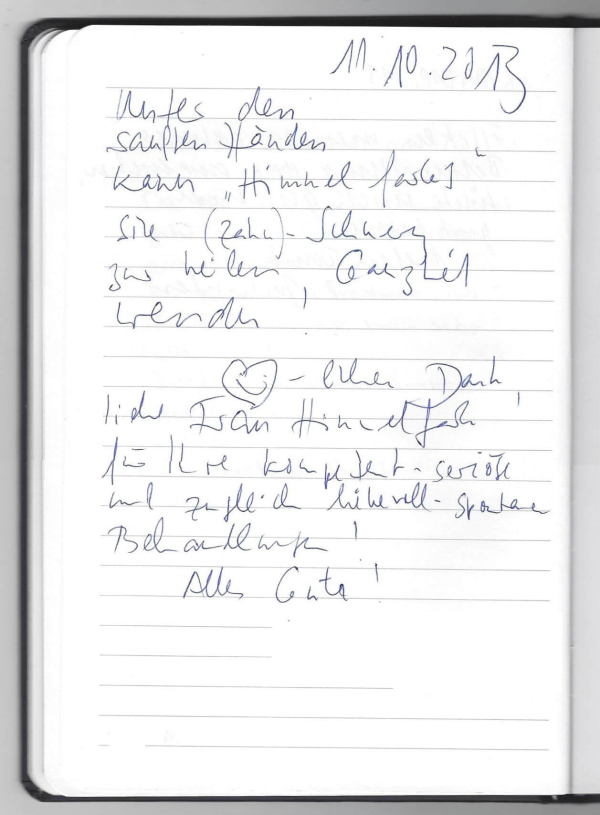 11.10.2013
Unter den
sanften Händen
kann „Himmelfarbs"
(Zahn)-Schmerz
zur heilen Ganzheit
werden!
-licher Dank,
liebe Frau Himmelfarb
für Ihre kompetent-seriöse
und zugleich liebevoll-spontane
Behandlungen!
Alles Gute!